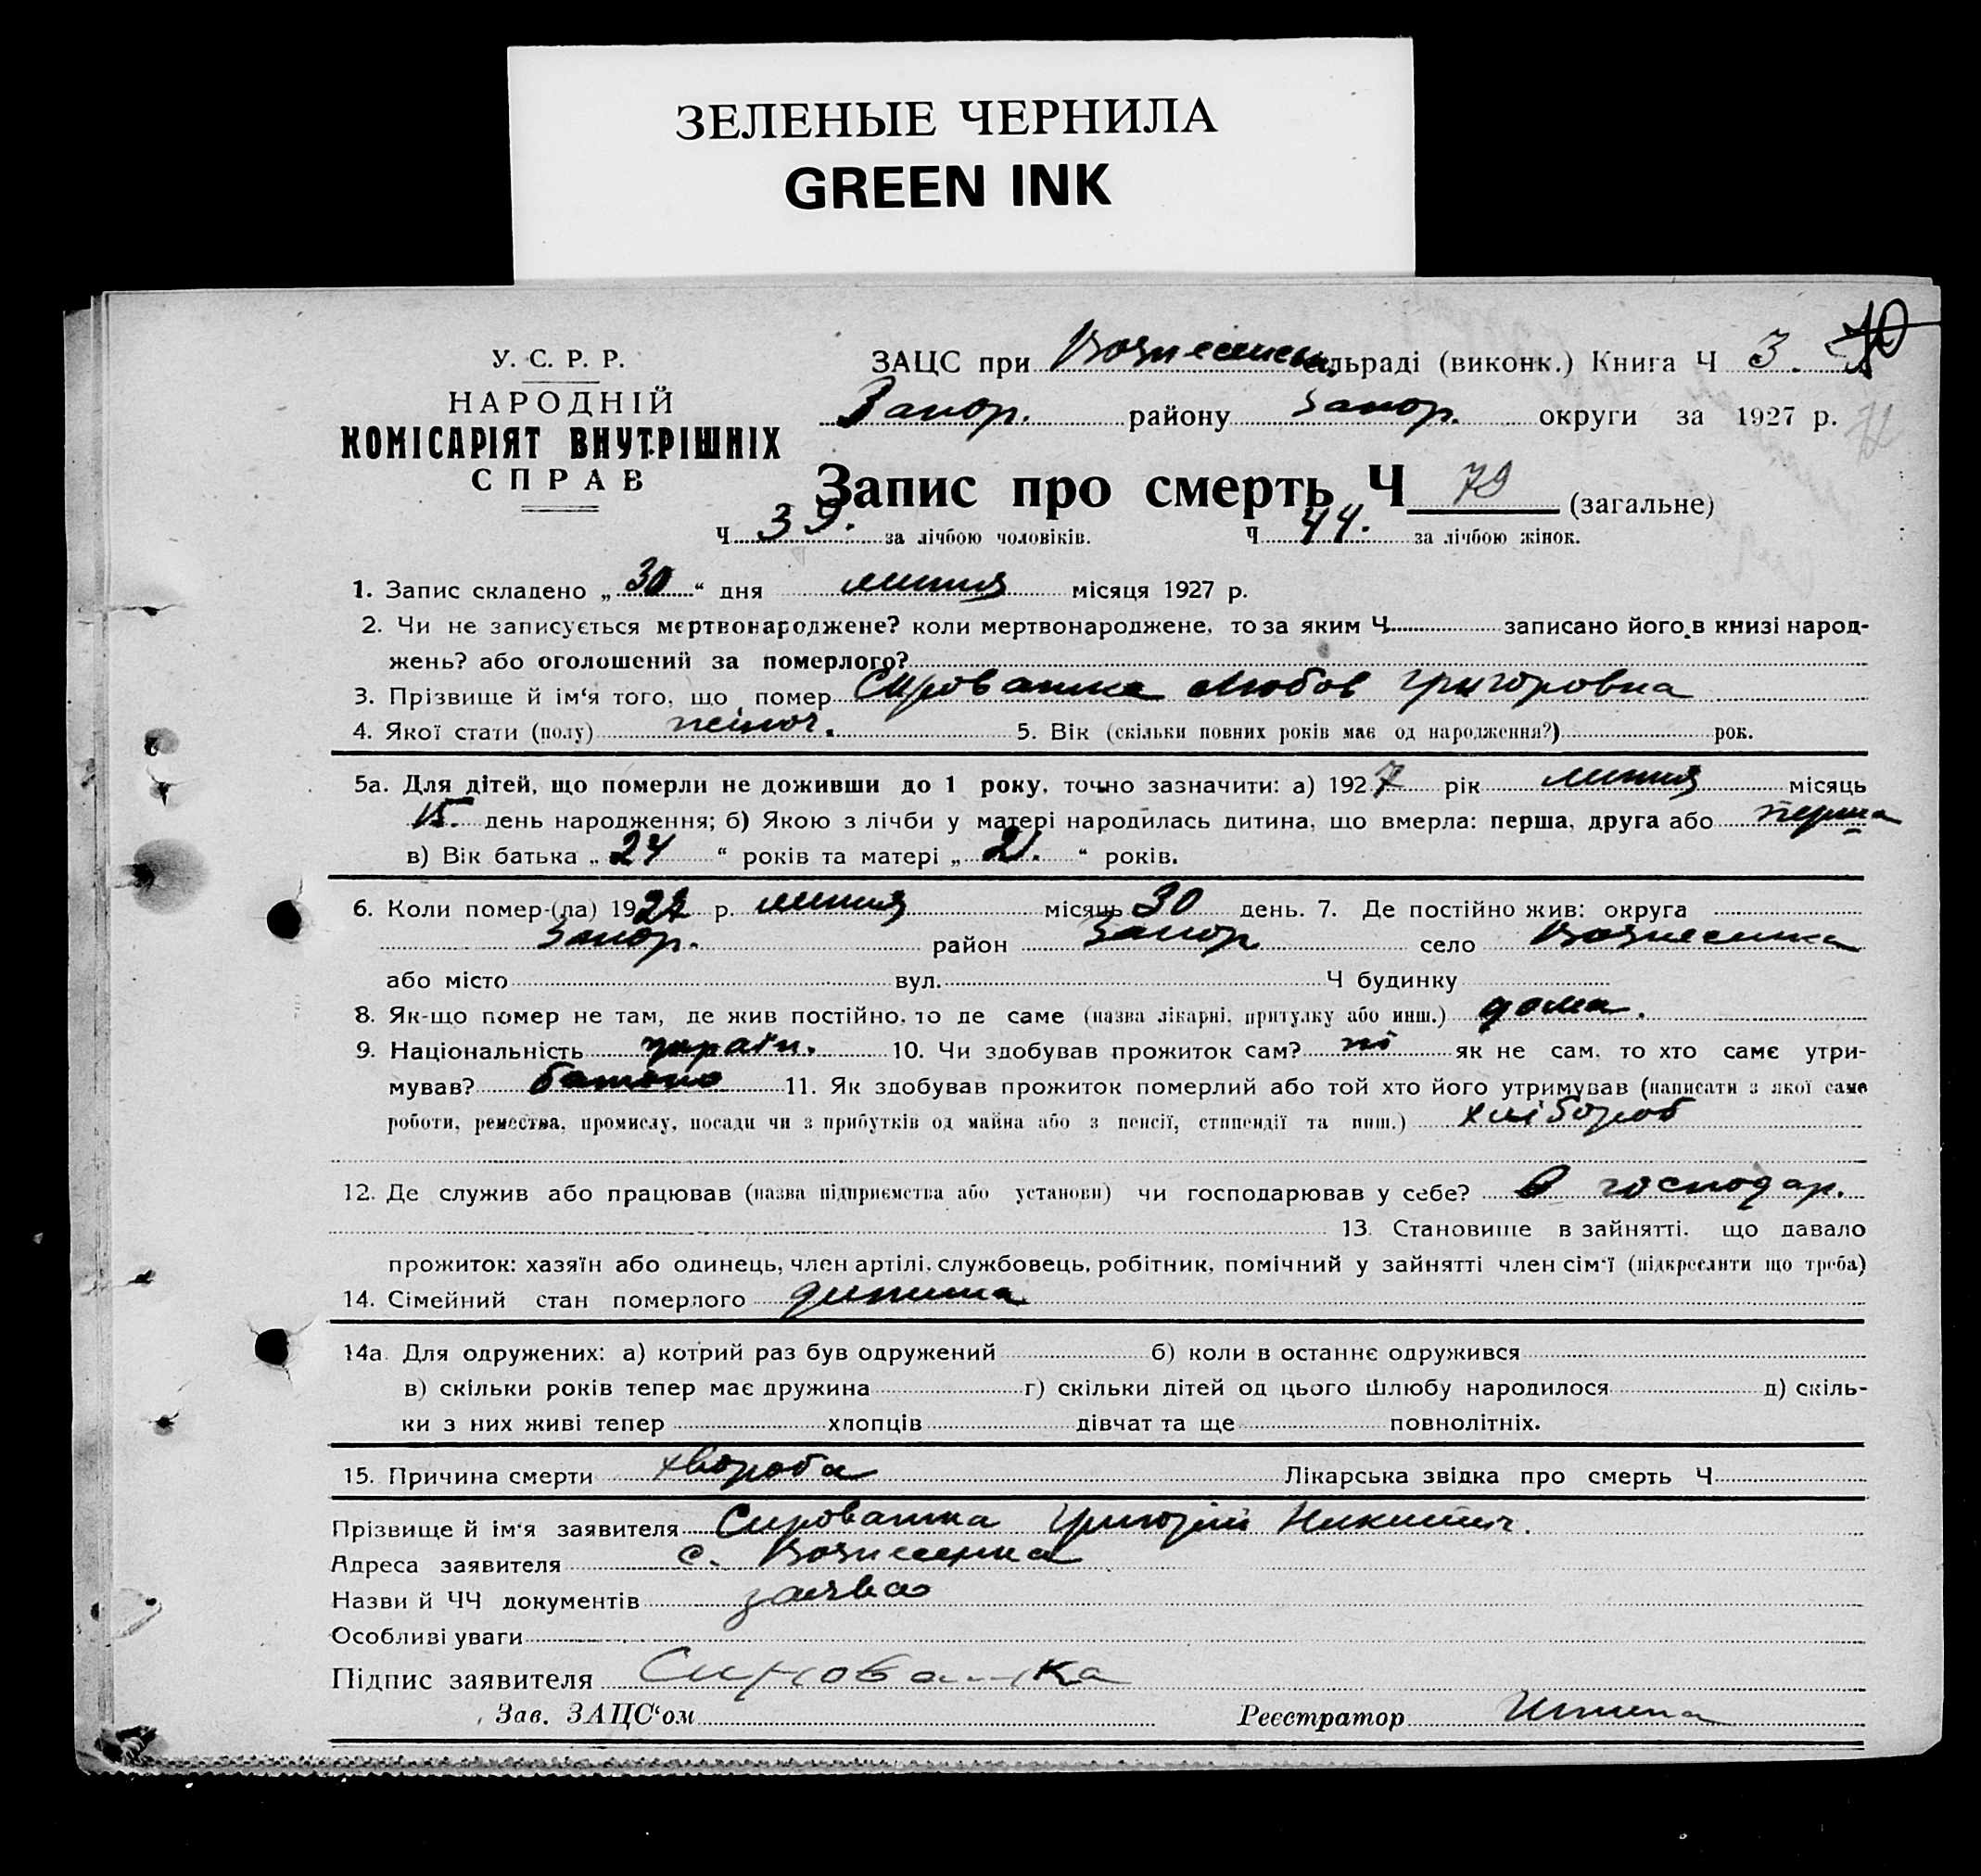 ЗЕЛЕНЫЕ ЧЕРНИЛА
GREEN INK
У. С. Р. Р.
НАРОДНІЙ
КОМІСАРІЯТ ВНУТРІШНІХ
СПРАВ
ЗАЦС при Вознесенськ. сільраді (виконк.) Книга Ч 3.
Запор. району Запор. округи за 1927 р.
Запис про смерть Ч 79 (загальне)
Ч 39. за лічбою чоловіків. Ч 44. за лічбою жінок.
1. Запис складено „ 30 “ дня липня місяця 1927 р.
2. Чи не записується мертвонароджене? коли мертвонароджене, то за яким Ч записано його в книзі народ-
жень? або оголошений за померлого?
3. Прізвище й ім‘я того, що помер Сироватка Любов Григоровна
4. Якої стати (полу) жіноч. 5. Вік (скільки повних років має од народження?) рок.
5а. Для дітей, що померли не доживши до 1 року, точно зазначити: а) 1927 рік липня місяць
15. день народження; б) Якою з лічби у матері народилась дитина, що вмерла: перша, друга або перша
в) Вік батька „ 24 “ років та матері „ 21. “ років.
6. Коли помер-(ла) 1927 р. липня місяць 30 день. 7. Де постійно жив: округа
Запор. район Запор село Вознесенка
або місто вул. Ч будинку
8. Як-що помер не там, де жив постійно, то де саме (назва лікарні, притулку або инш.) дома.
9. Національність україн. 10. Чи здобував прожиток сам? ні як не сам, то хто саме утри-
мував? батько 11. Як здобував прожиток померлий або той хто його утримував (написати з якої саме
роботи, ремества, промислу, посади чи з прибутків од майна або з пенсії, стипендії та инш.) хлібороб
12. Де служив або працював (назва підприємства або установи) чи господарював у себе? в господар.
13. Становище в зайнятті, що давало
прожиток: хазяїн або одинець, член артілі, службовець, робітник, помічний у зайнятті член сім‘ї (підкреслити що треба)
14. Сімейний стан померлого дитина
14а. Для одружених: а) котрий раз був одружений б) коли в останнє одружився
в) скільки років тепер має дружина г) скільки дітей од цього шлюбу народилося д) скіль-
ки з них живі тепер хлопців дівчат та ще повнолітніх.
15. Причина смерти хвороба Лікарська звідка про смерть Ч
Прізвище й ім‘я заявителя Сироватка Григорій Никитич.
Адреса заявителя с. Вознесенка
Назви й ЧЧ документів заява
Особливі уваги
Підпис заявителя Сироватка
Зав. ЗАЦС‘ом Реєстратор